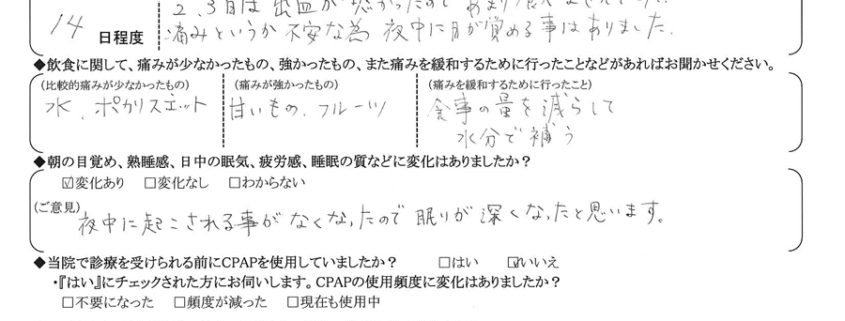 2、3日は出血が
14 日程度
痛みというか不安な為 夜中に目が覚める事はありました。
◆飲食に関して、痛みが少なかったもの、強かったもの、また痛みを緩和するために行ったことなどがあればお聞かせください。
(比較的痛みが少なかったもの) (痛みが強かったもの) (痛みを緩和するために行ったこと)
水、ポカリスエット 甘いもの、フルーツ 食事の量を減らして
水分で補う
◆朝の目覚め、熟睡感、日中の眠気、疲労感、睡眠の質などに変化はありましたか?
☑変化あり □変化なし □わからない
(ご意見)
夜中に起こされる事がなくなったので 眠りが深くなったと思います。
◆当院で診療を受けられる前にCPAPを使用していましたか? □はい ☑いいえ
・『はい』にチェックされた方にお伺いします。CPAPの使用頻度に変化はありましたか?
□不要になった □頻度が減った □現在も使用中